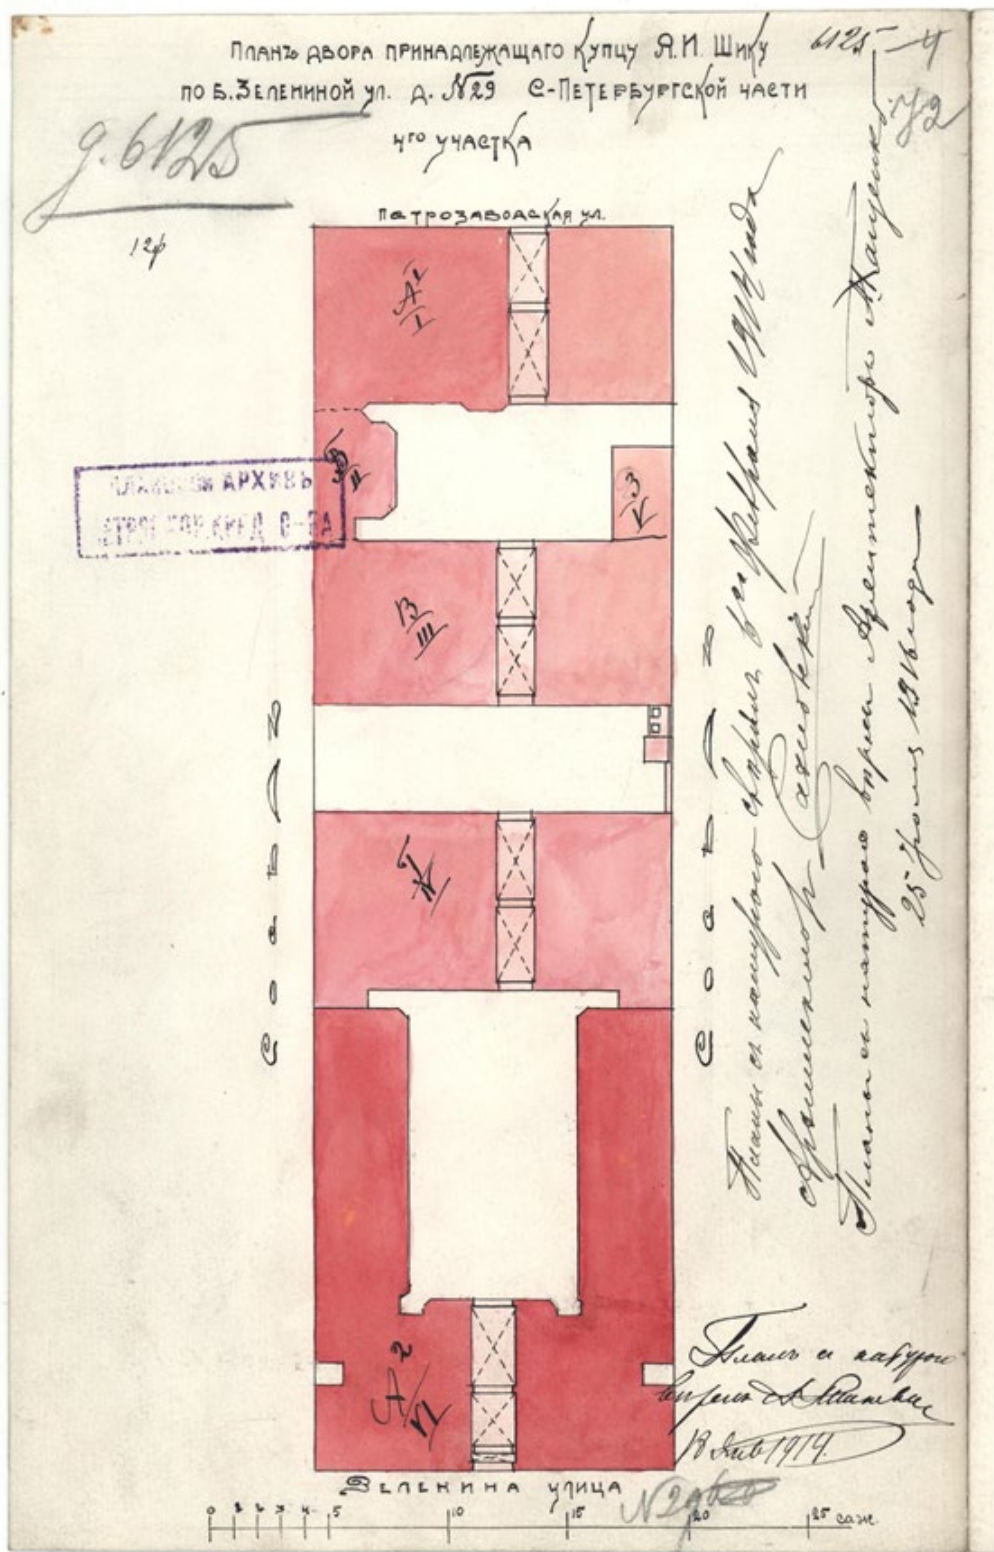 6125
4
Планъ двора принадлежащаго купцу Я.И. Шику
по Б. Зелениной ул. д. №29 С-Петербургской части
4го участка
д. 6125
Петрозаводская ул.
А1
I
Б
II
З
V
В
III
Г
IV
А2
VI
Сосѣдъ
Сосѣдъ
АРХИВЪ
КРЕД. О-ВА
Планъ съ натурою свѣрялъ 1914 года
Архитекторъ
Планъ съ натурою вѣренъ Архитекторъ
25 1916 года
Планъ съ натурою
вѣренъ
18 Янв 1914.
Зеленина улица
N 29
0 1 2 3 4 5 10 15 20 25 саж.